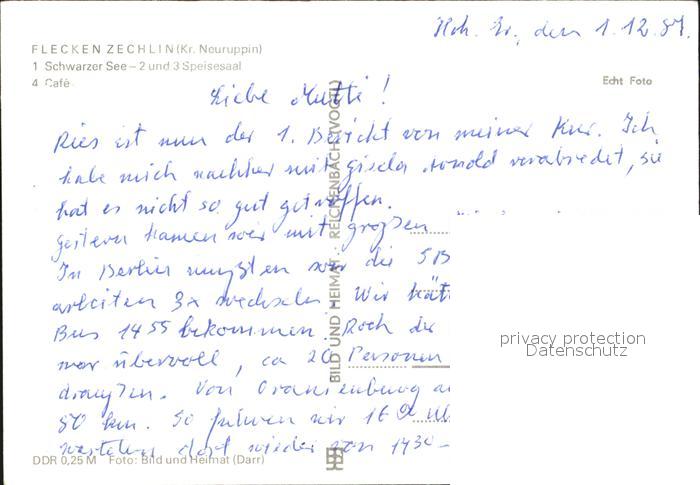 Hoh. Er., den 1.12.87.
FLECKEN ZECHLIN (Kr. Neuruppin)
1 Schwarzer See – 2 und 3 Speisesaal
4 Café
Echt Foto
Liebe Mutti!
Dies ist nun der 1. Bericht von meiner Kur. Ich
habe mich nachher mit gisela Arnold verabredet, sie
hat es nicht so gut getroffen.
gestern kamen wir mit großen
In Berlin mußten wir die SB
arbeiten 3x wechseln. Wir hät
Bus 14 55 bekommen. Doch der
war übervoll, ca 20 Personen
draußen. Von Oranienburg a
80 km. So fuhren wir 16
dort wieder von 1430 –
BILD UND HEIMAT REICHENBACH (VOGTL)
DDR 0,25 M Foto: Bild und Heimat (Darr)
privacy protection
Datenschutz